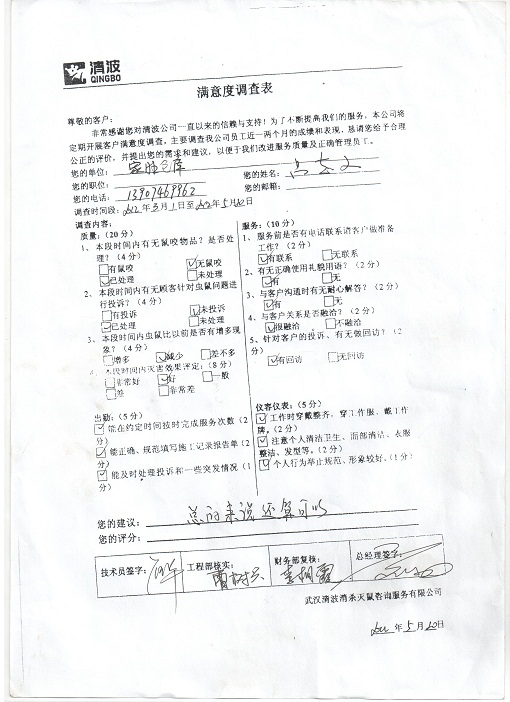 清波
QINGBO
满意度调查表
尊敬的客户：
非常感谢您对清波公司一直以来的信赖与支持！为了不断提高我们的服务，本公司将
定期开展客户满意度调查，主要调查我公司员工近一两个月的成绩和表现，恳请您给予合理
公正的评价，并提出您的需求和建议，以便于我们改进服务质量及正确管理员工。
您的单位： 您的姓名：
您的职位： 您的邮箱：
您的电话：13907469962
调查时间段：2012年3月1日至2012年5月10日
调查内容：
质量：（20分）
1、本段时间内有无鼠咬物品？是否处
理？（4分）
□有鼠咬 ☑无鼠咬
☑已处理 □未处理
2、本段时间内有无顾客针对虫鼠问题进
行投诉？（4分）
□有投诉 ☑未投诉
☑已处理 □未处理
3、本段时间内虫鼠比以前是否有增多现
象？（4分）
□增多 ☑减少 □差不多
4、本段时间内灭害效果评定：（8分）
□非常好 ☑好 □一般
□差 □非常差
服务：（10分）
1、服务前是否有电话联系请客户做准备
工作？（2分）
☑有联系 □无联系
2、有无正确使用礼貌用语？（2分）
☑有 □无
3、与客户沟通时有无耐心解答？（2分）
☑有 □无
4、与客户关系是否融洽？（2分）
☑很融洽 □不融洽
5、针对客户的投诉、有无做回访？（2
分）
☑有回访 □无回访
出勤：（5分）
☑能在约定时间按时完成服务次数（2
分）
☑能正确、规范填写施工记录报告单（2
分）
☑能及时处理投诉和一些突发情况（1
分）
仪容仪表：（5分）
☑工作时穿戴整齐，穿工作服、戴工作
牌。（2分）
☑注意个人清洁卫生、面部清洁、衣服
整洁、发型等。（2分）
☑个人行为举止规范、形象较好。（1分）
您的建议：总的来说还算可以
您的评分：
技术员签字： 工程部核实： 财务部复核： 总经理签字：
武汉清波消杀灭鼠咨询服务有限公司
2012年5月10日